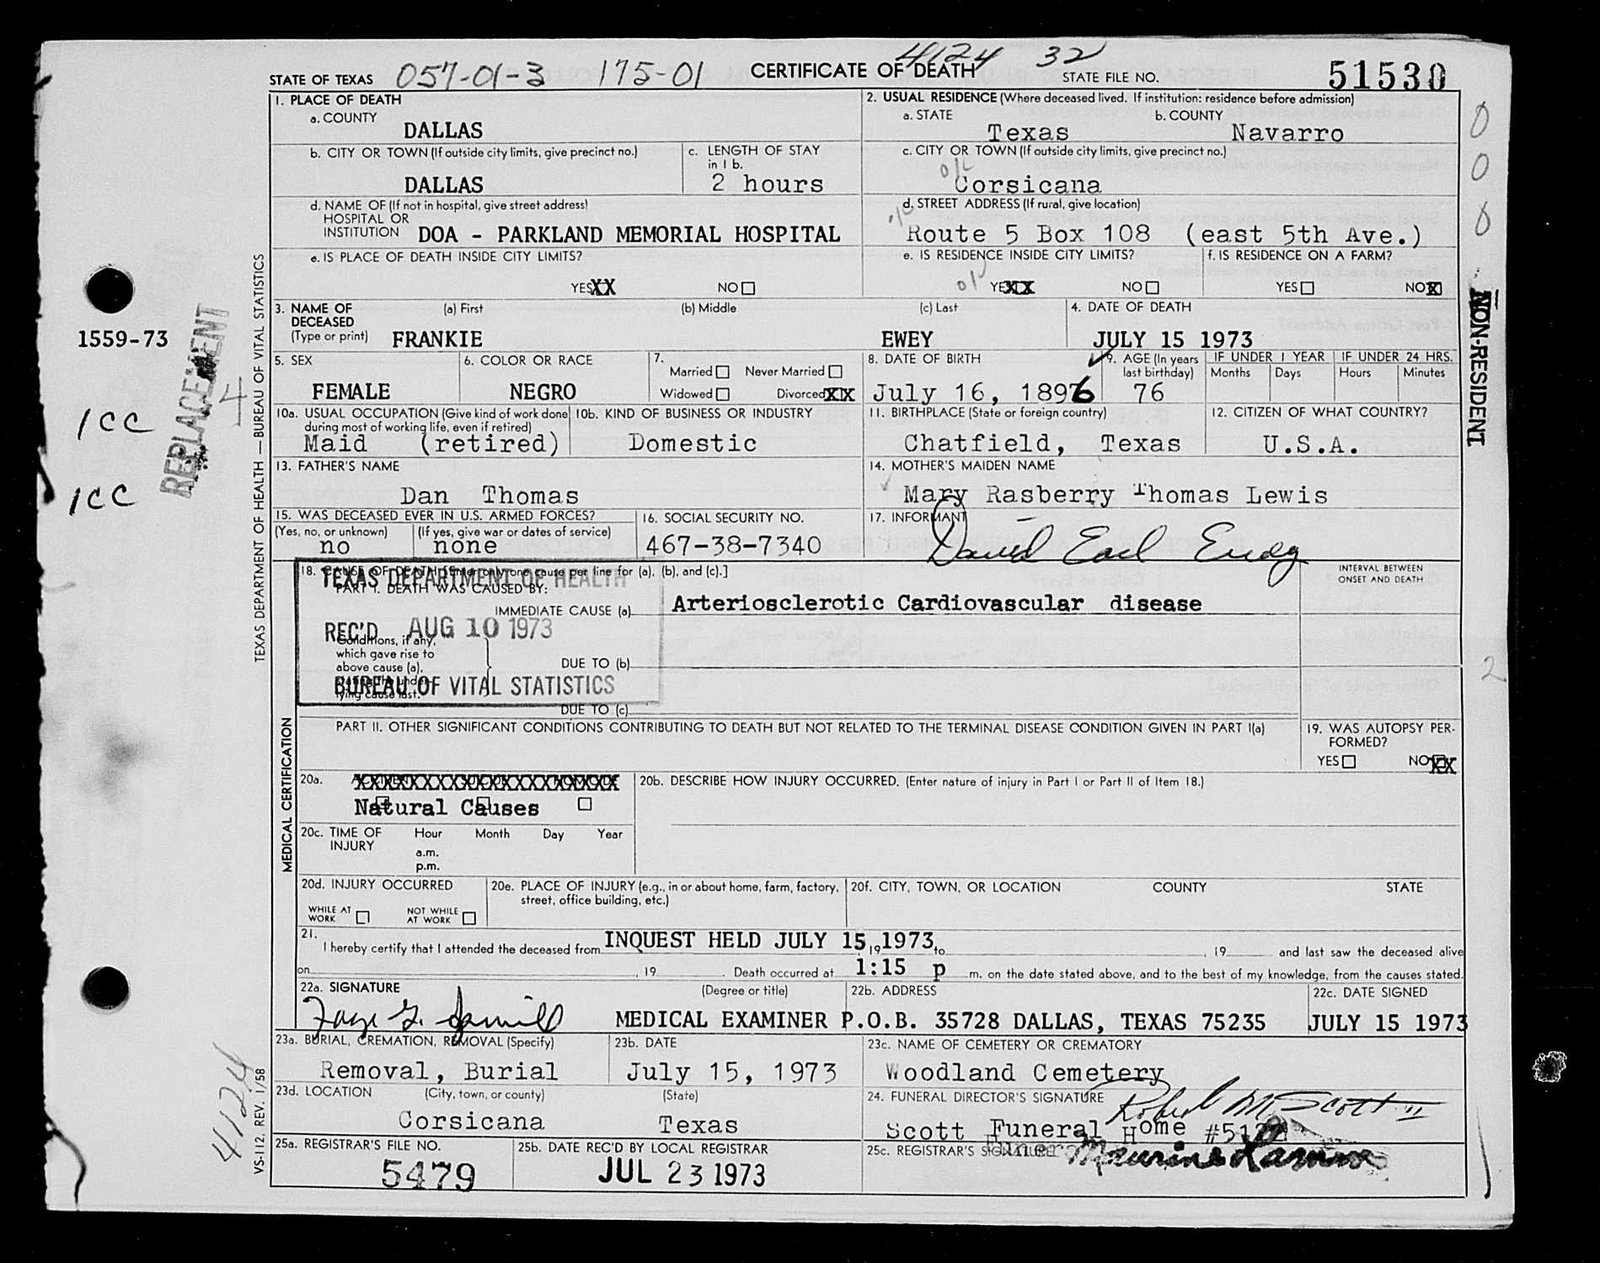 4124 32
STATE OF TEXAS 057-01-3 175-01 CERTIFICATE OF DEATH STATE FILE NO. 51530
1. PLACE OF DEATH
a. COUNTY
DALLAS
2. USUAL RESIDENCE (Where deceased lived. If institution: residence before admission)
a. STATE b. COUNTY
Texas Navarro
b. CITY OR TOWN (If outside city limits, give precinct no.)
DALLAS
c. LENGTH OF STAY in 1 b.
2 hours
c. CITY OR TOWN (If outside city limits, give precinct no.)
Corsicana
d. NAME OF (If not in hospital, give street address)
HOSPITAL OR
INSTITUTION DOA - PARKLAND MEMORIAL HOSPITAL
d. STREET ADDRESS (If rural, give location)
Route 5 Box 108 (east 5th Ave.)
e. IS PLACE OF DEATH INSIDE CITY LIMITS?
YES XX NO
e. IS RESIDENCE INSIDE CITY LIMITS?
YES XX NO
f. IS RESIDENCE ON A FARM?
YES NO X
3. NAME OF DECEASED (Type or print)
(a) First (b) Middle (c) Last
FRANKIE EWEY
4. DATE OF DEATH
JULY 15 1973
5. SEX
FEMALE
6. COLOR OR RACE
NEGRO
7.
Married Never Married
Widowed Divorced XX
8. DATE OF BIRTH
July 16, 1896
9. AGE (In years last birthday)
76
IF UNDER 1 YEAR IF UNDER 24 HRS.
Months Days Hours Minutes
10a. USUAL OCCUPATION (Give kind of work done during most of working life, even if retired)
Maid (retired)
10b. KIND OF BUSINESS OR INDUSTRY
Domestic
11. BIRTHPLACE (State or foreign country)
Chatfield, Texas
12. CITIZEN OF WHAT COUNTRY?
U.S.A.
13. FATHER'S NAME
Dan Thomas
14. MOTHER'S MAIDEN NAME
Mary Rasberry Thomas Lewis
15. WAS DECEASED EVER IN U.S. ARMED FORCES?
(Yes, no, or unknown) (If yes, give war or dates of service)
no none
16. SOCIAL SECURITY NO.
467-38-7340
17. INFORMANT
David Earl
18. CAUSE OF DEATH [Enter only one cause per line for (a), (b), and (c).]
PART I. DEATH WAS CAUSED BY:
INTERVAL BETWEEN ONSET AND DEATH
IMMEDIATE CAUSE (a) Arteriosclerotic Cardiovascular disease
Conditions, if any,
which gave rise to
above cause (a),
lying cause last.
DUE TO (b)
DUE TO (c)
TEXAS DEPARTMENT OF HEALTH
REC'D AUG 10 1973
BUREAU OF VITAL STATISTICS
PART II. OTHER SIGNIFICANT CONDITIONS CONTRIBUTING TO DEATH BUT NOT RELATED TO THE TERMINAL DISEASE CONDITION GIVEN IN PART I(a)
19. WAS AUTOPSY PERFORMED?
YES NO XX
20a.
Natural Causes
20b. DESCRIBE HOW INJURY OCCURRED. (Enter nature of injury in Part I or Part II of Item 18.)
20c. TIME OF INJURY Hour Month Day Year
a.m.
p.m.
20d. INJURY OCCURRED
WHILE AT WORK NOT WHILE AT WORK
20e. PLACE OF INJURY (e.g., in or about home, farm, factory, street, office building, etc.)
20f. CITY, TOWN, OR LOCATION COUNTY STATE
21.
I hereby certify that I attended the deceased from INQUEST HELD JULY 15, 19 1973, to , 19 and last saw the deceased alive
on , 19 . Death occurred at 1:15 p m. on the date stated above, and to the best of my knowledge, from the causes stated.
22a. SIGNATURE (Degree or title)
MEDICAL EXAMINER
22b. ADDRESS
P.O.B. 35728 DALLAS, TEXAS 75235
22c. DATE SIGNED
JULY 15 1973
23a. BURIAL, CREMATION, REMOVAL (Specify)
Removal, Burial
23b. DATE
July 15, 1973
23c. NAME OF CEMETERY OR CREMATORY
Woodland Cemetery
23d. LOCATION (City, town, or county) (State)
Corsicana Texas
24. FUNERAL DIRECTOR'S SIGNATURE
Robert M. Scott II
Scott Funeral Home
25a. REGISTRAR'S FILE NO.
5479
25b. DATE REC'D BY LOCAL REGISTRAR
JUL 23 1973
25c. REGISTRAR'S SIGNATURE
1559-73
1CC
1CC
REPLACEMENT
4
4124
TEXAS DEPARTMENT OF HEALTH — BUREAU OF VITAL STATISTICS
MEDICAL CERTIFICATION
VS-112, REV. 1/58
NON-RESIDENT
0
0
0
2